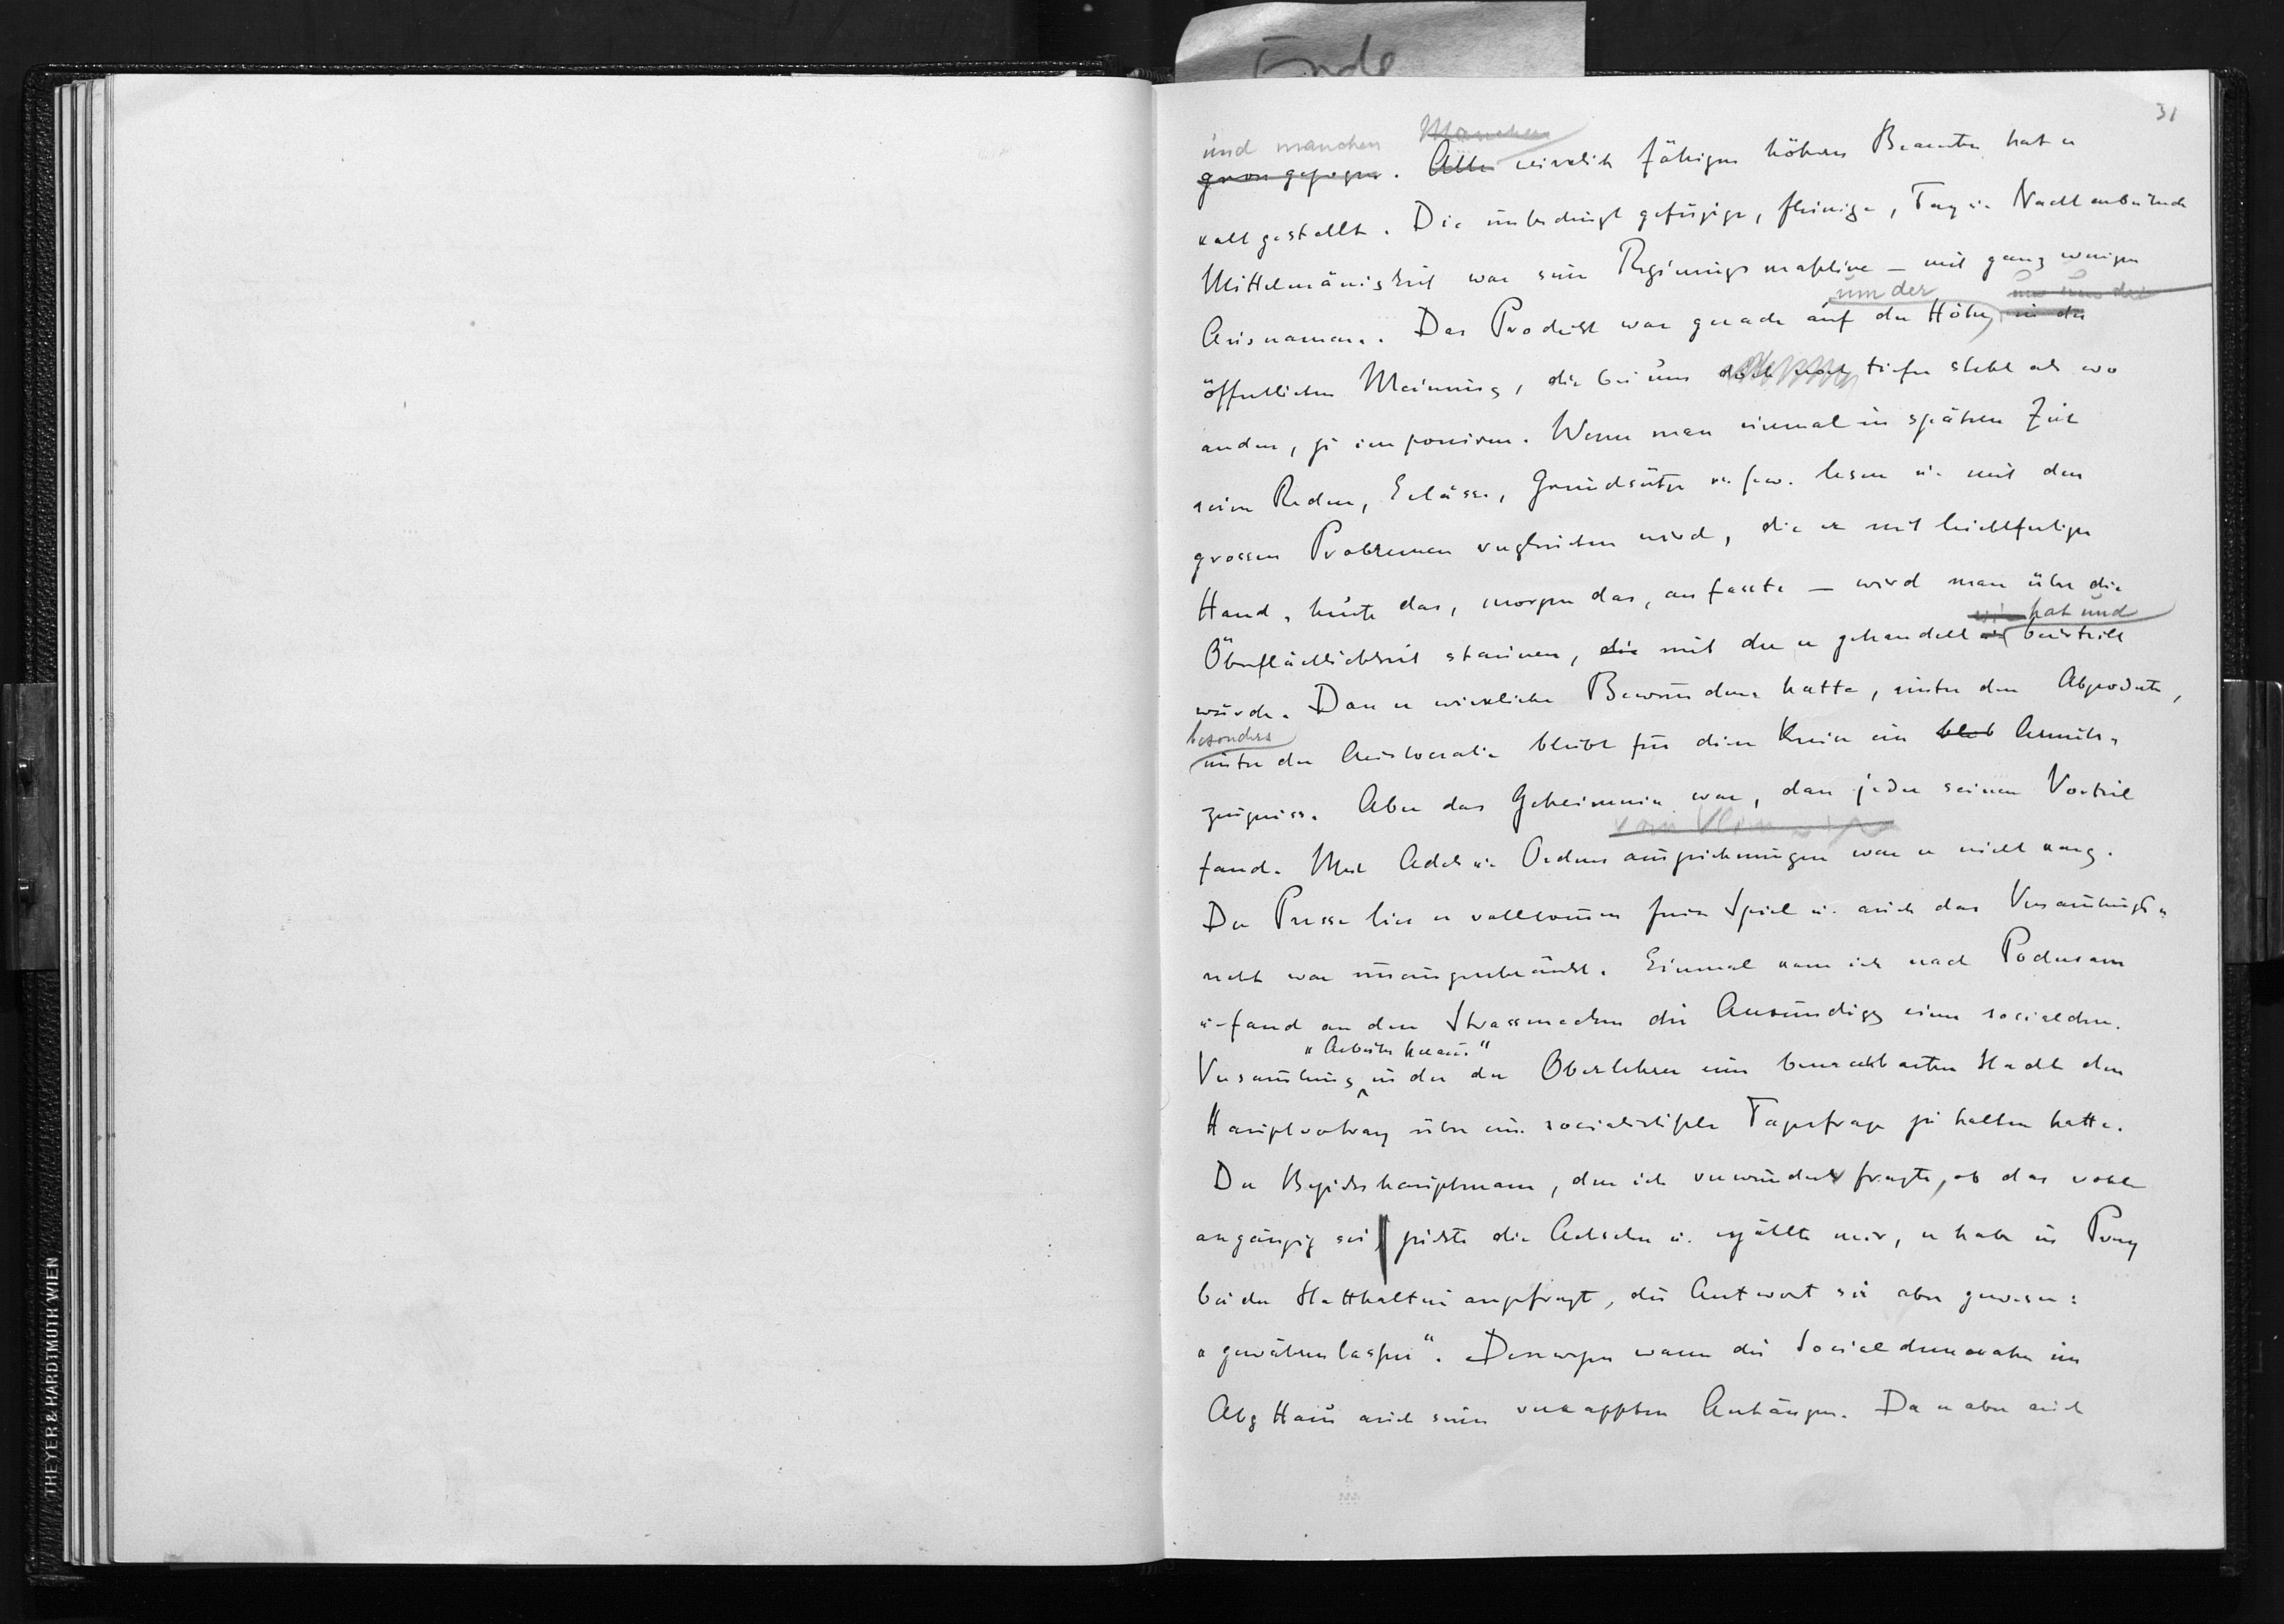 Ende
31
und manchen Manchen
grossgezogen. Alle wirklich fähigen höheren Beamten hat er
kalt gestellt. Die unbedingt gefügige, fleissige, Tag u. Nacht arbeitende
Mittelmässigkeit war seine Regierungsmaschine – mit ganz wenigen
um der um uns der
Ausnamen. Das Produkt war gerade auf der Höhe, in der
öffentlichen Meinung, die bei uns doch noch tiefer steht als wo
anders, zu imponiren. Wenn man einmal in späterer Zeit
seine Reden, Erlässe, Grundsätze u.s.w. lesen u. mit den
grossen Problemen vergleichen wird, die er mit leichtfertiger
Hand, heute das, morgen das, anfasste – wird man über die
wie hat und
Oberflächlichkeit staunen, die mit der er gehandelt beurteilt
wurde. Dass er wirkliche Bewunderer hatte, unter den Abgeordneten,
besonders
unter der Aristocratie bleibt für diese Kreise ein bleib Armuts-
zeugniss. Aber das Geheimniss war, dass jeder seinen Vorteil
fand. Mit Adels u. Ordens auszeichnungen war er nicht karg.
Der Presse liess er vollkommen freies Spiel u. auch das Versammlungs-
recht war uneingeschränkt. Einmal kam ich nach Podersam
u. fand an den Strassenecken die Ankündigg einer socialdem.
"Arbeiter heraus"
Versammlung in der der Oberlehrer einer benachbarten Stadt den
Hauptvortrag über eine socialistische Tagesfrage zu halten hatte.
Der Bezirkshauptmann, den ich verwundert fragte, ob das wohl
angängig sei, zuckte die Achseln u. erzählte mir, er habe in Prag
bei der Statthalterei angefragt, die Antwort sei aber gewesen:
"gewähren lassen". Deswegen waren die Socialdemocraten im
Abg Haus auch seine verkappten Anhänger. Da er aber auch
THEYER & HARDTMUTH WIEN